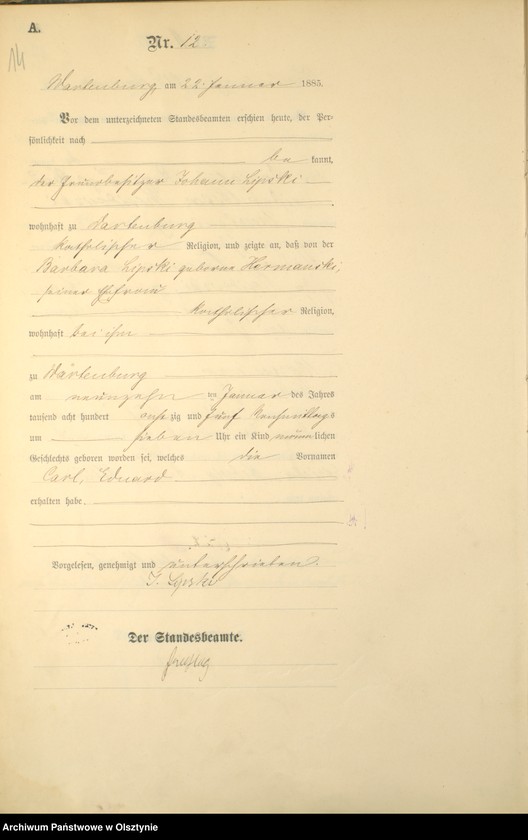 A.
14
Nr. 12.
Wartenburg, am 22. Januar 1885.
Vor dem unterzeichneten Standesbeamten erschien heute, der Per-
sönlichkeit nach
be kannt,
der Johann Lipski
wohnhaft zu Wartenburg
katholischer Religion, und zeigte an, daß von der
Barbara Lipski geborene Hermanski,
seiner Ehefrau
katholischer Religion,
wohnhaft bei ihm
zu Wartenburg
am neunzehn ten Januar des Jahres
tausend acht hundert acht zig und fünf Nachmittags
um sieben Uhr ein Kind männ lichen
Geschlechts geboren worden sei, welches die Vornamen
Carl, Eduard
erhalten habe.
Vorgelesen, genehmigt und unterschrieben.
J. Lipski
Der Standesbeamte.
Archiwum Państwowe w Olsztynie